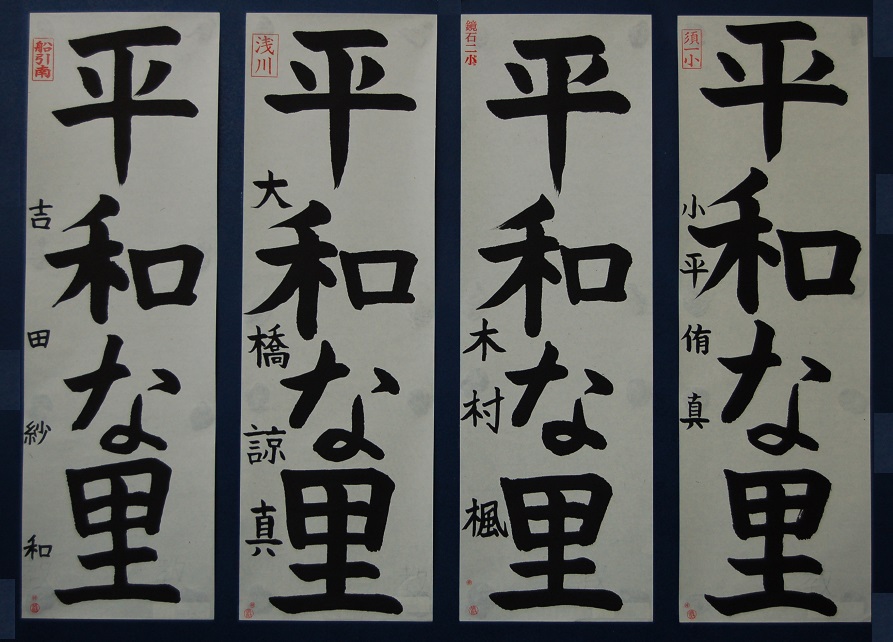 平和な里
船引南
吉田紗和
平和な里
浅川
大橋諒真
平和な里
鏡石二小
木村楓
平和な里
須一小
小平侑真